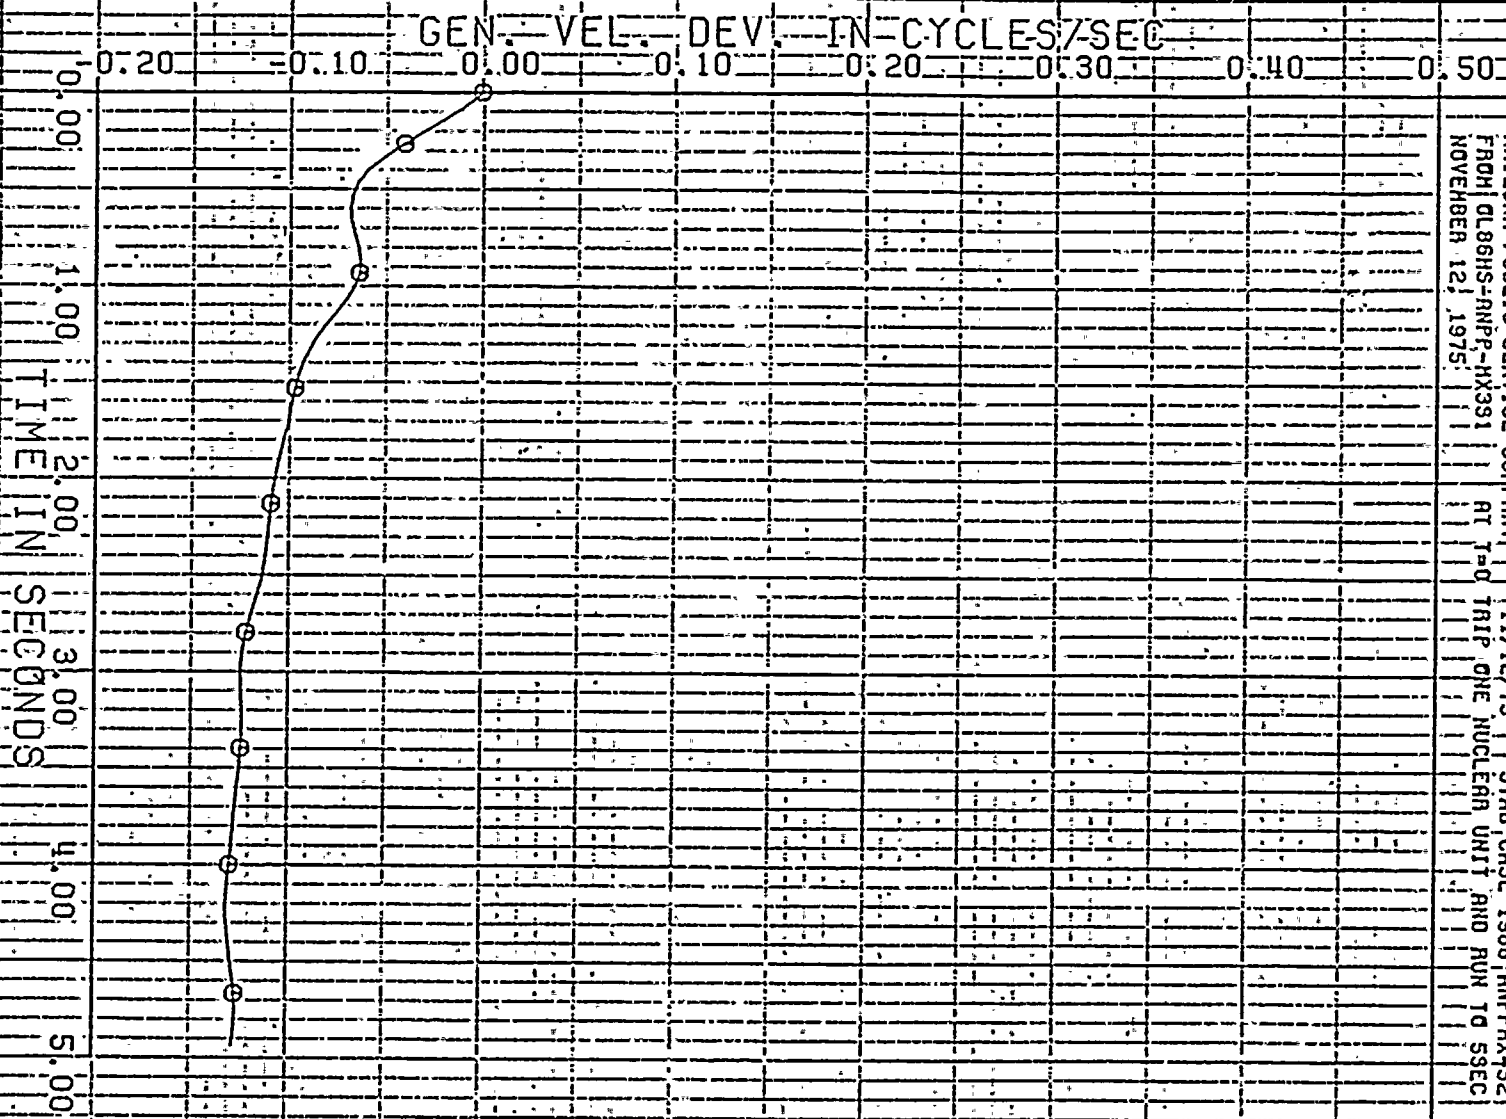 GEN. VEL. DEV. IN CYCLES/SEC
-0.20 -0.10 0.00 0.10 0.20 0.30 0.40 0.50
0.00 1.00 2.00 3.00 4.00 5.00
TIME IN SECONDS
FROM OL86HS-ANPP-MX3S1 AT T=0 TRIP ONE NUCLEAR UNIT AND RUN TO 5SEC
NOVEMBER 12, 1975